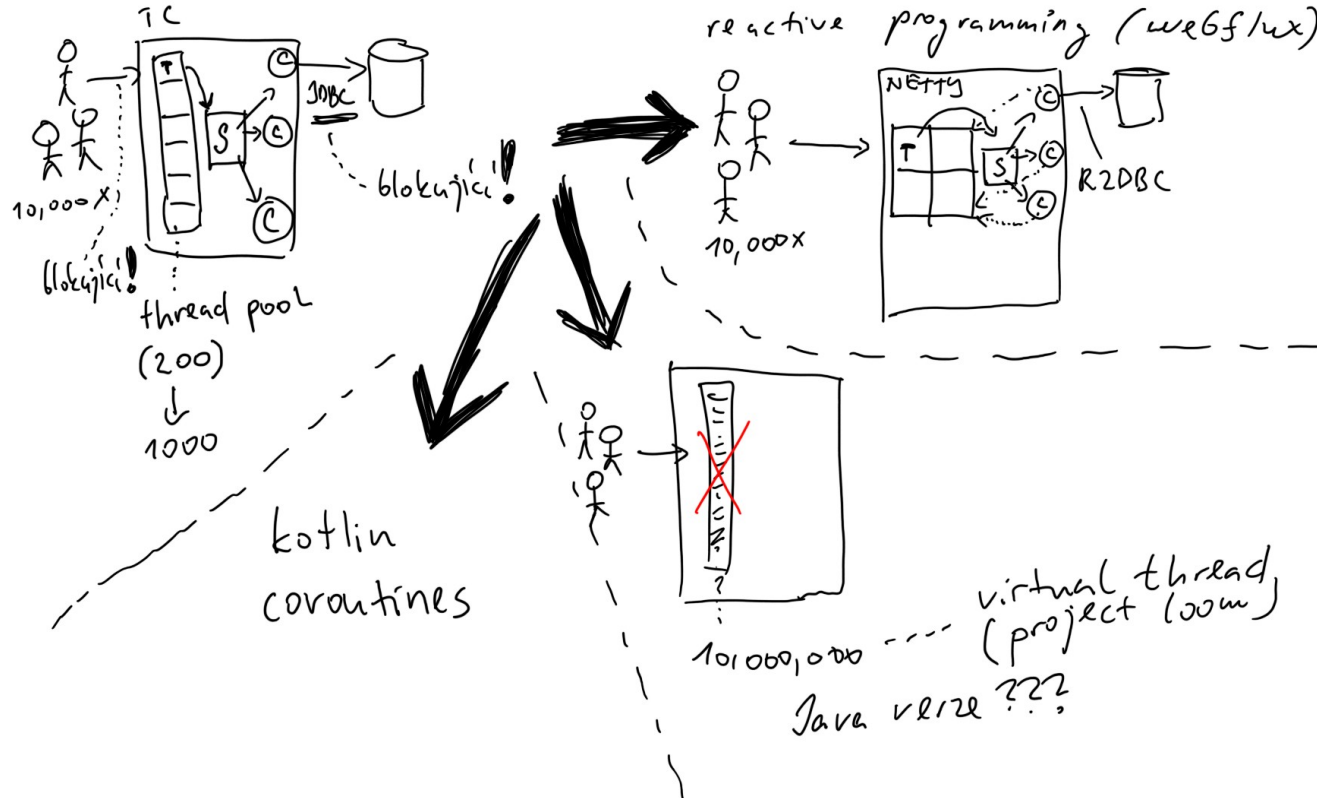 TC
T
S
C
C
C
JDBC
blokující!
10,000x
blokující!
thread pool
(200)
1000
reactive programming (webflux)
NETTY
T
S
C
C
C
R2DBC
10,000x
kotlin
coroutines
10,000,000
virtual thread,
(project loom)
Java verze ???